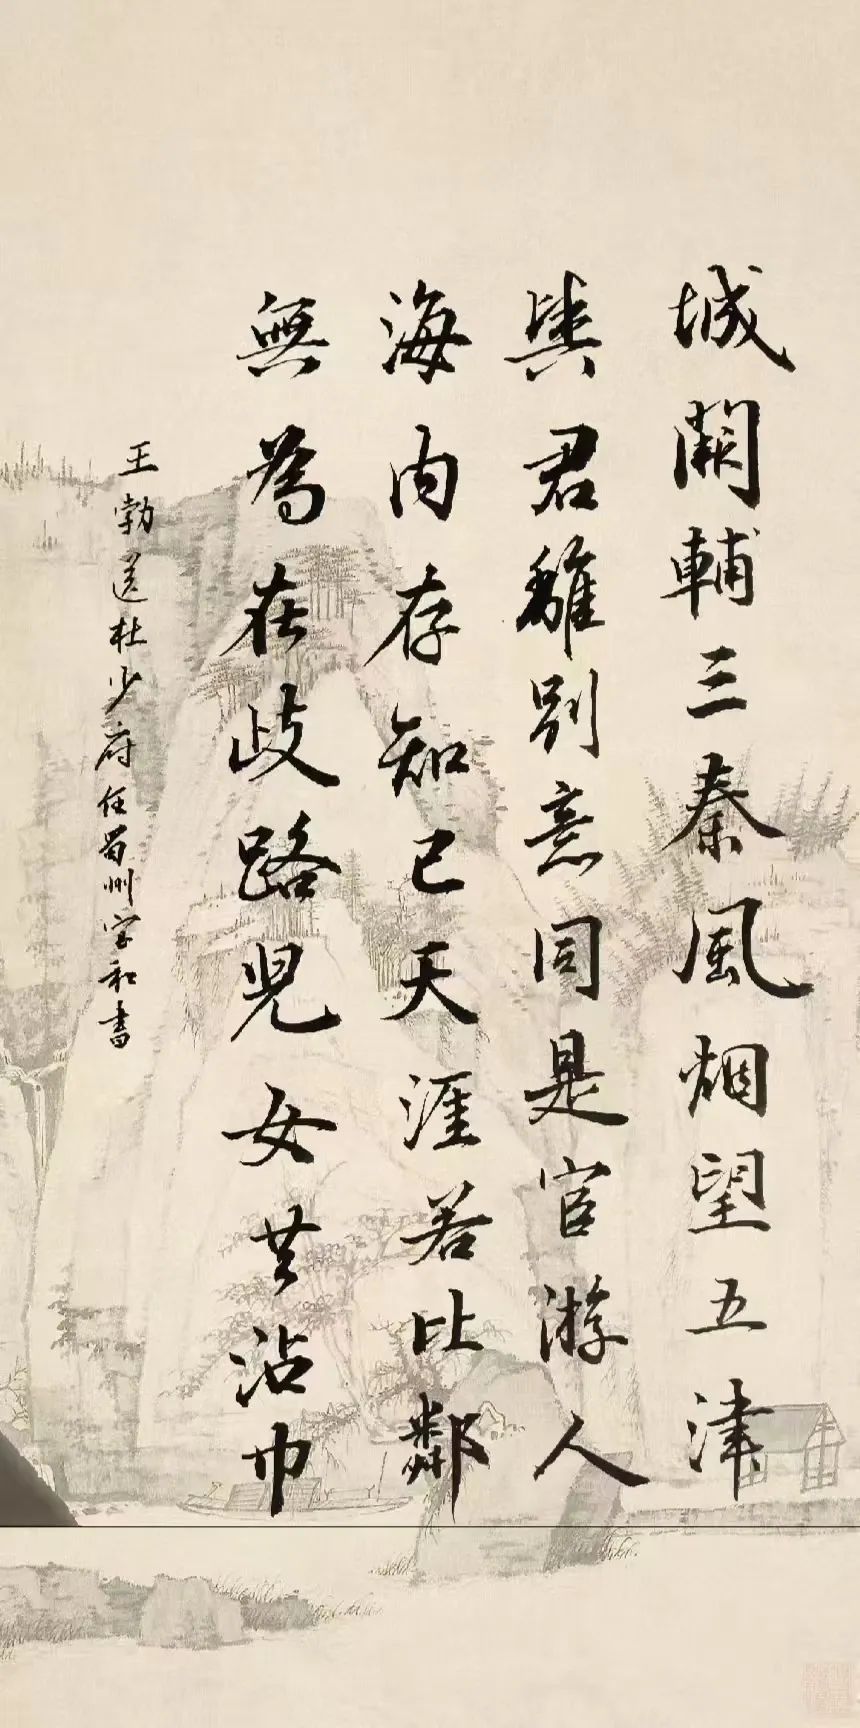 城闕輔三秦風烟望五津
與君離別意同是宦游人
海內存知己天涯若比鄰
無為在歧路兒女共沾巾
王勃送杜少府任蜀州宇和書